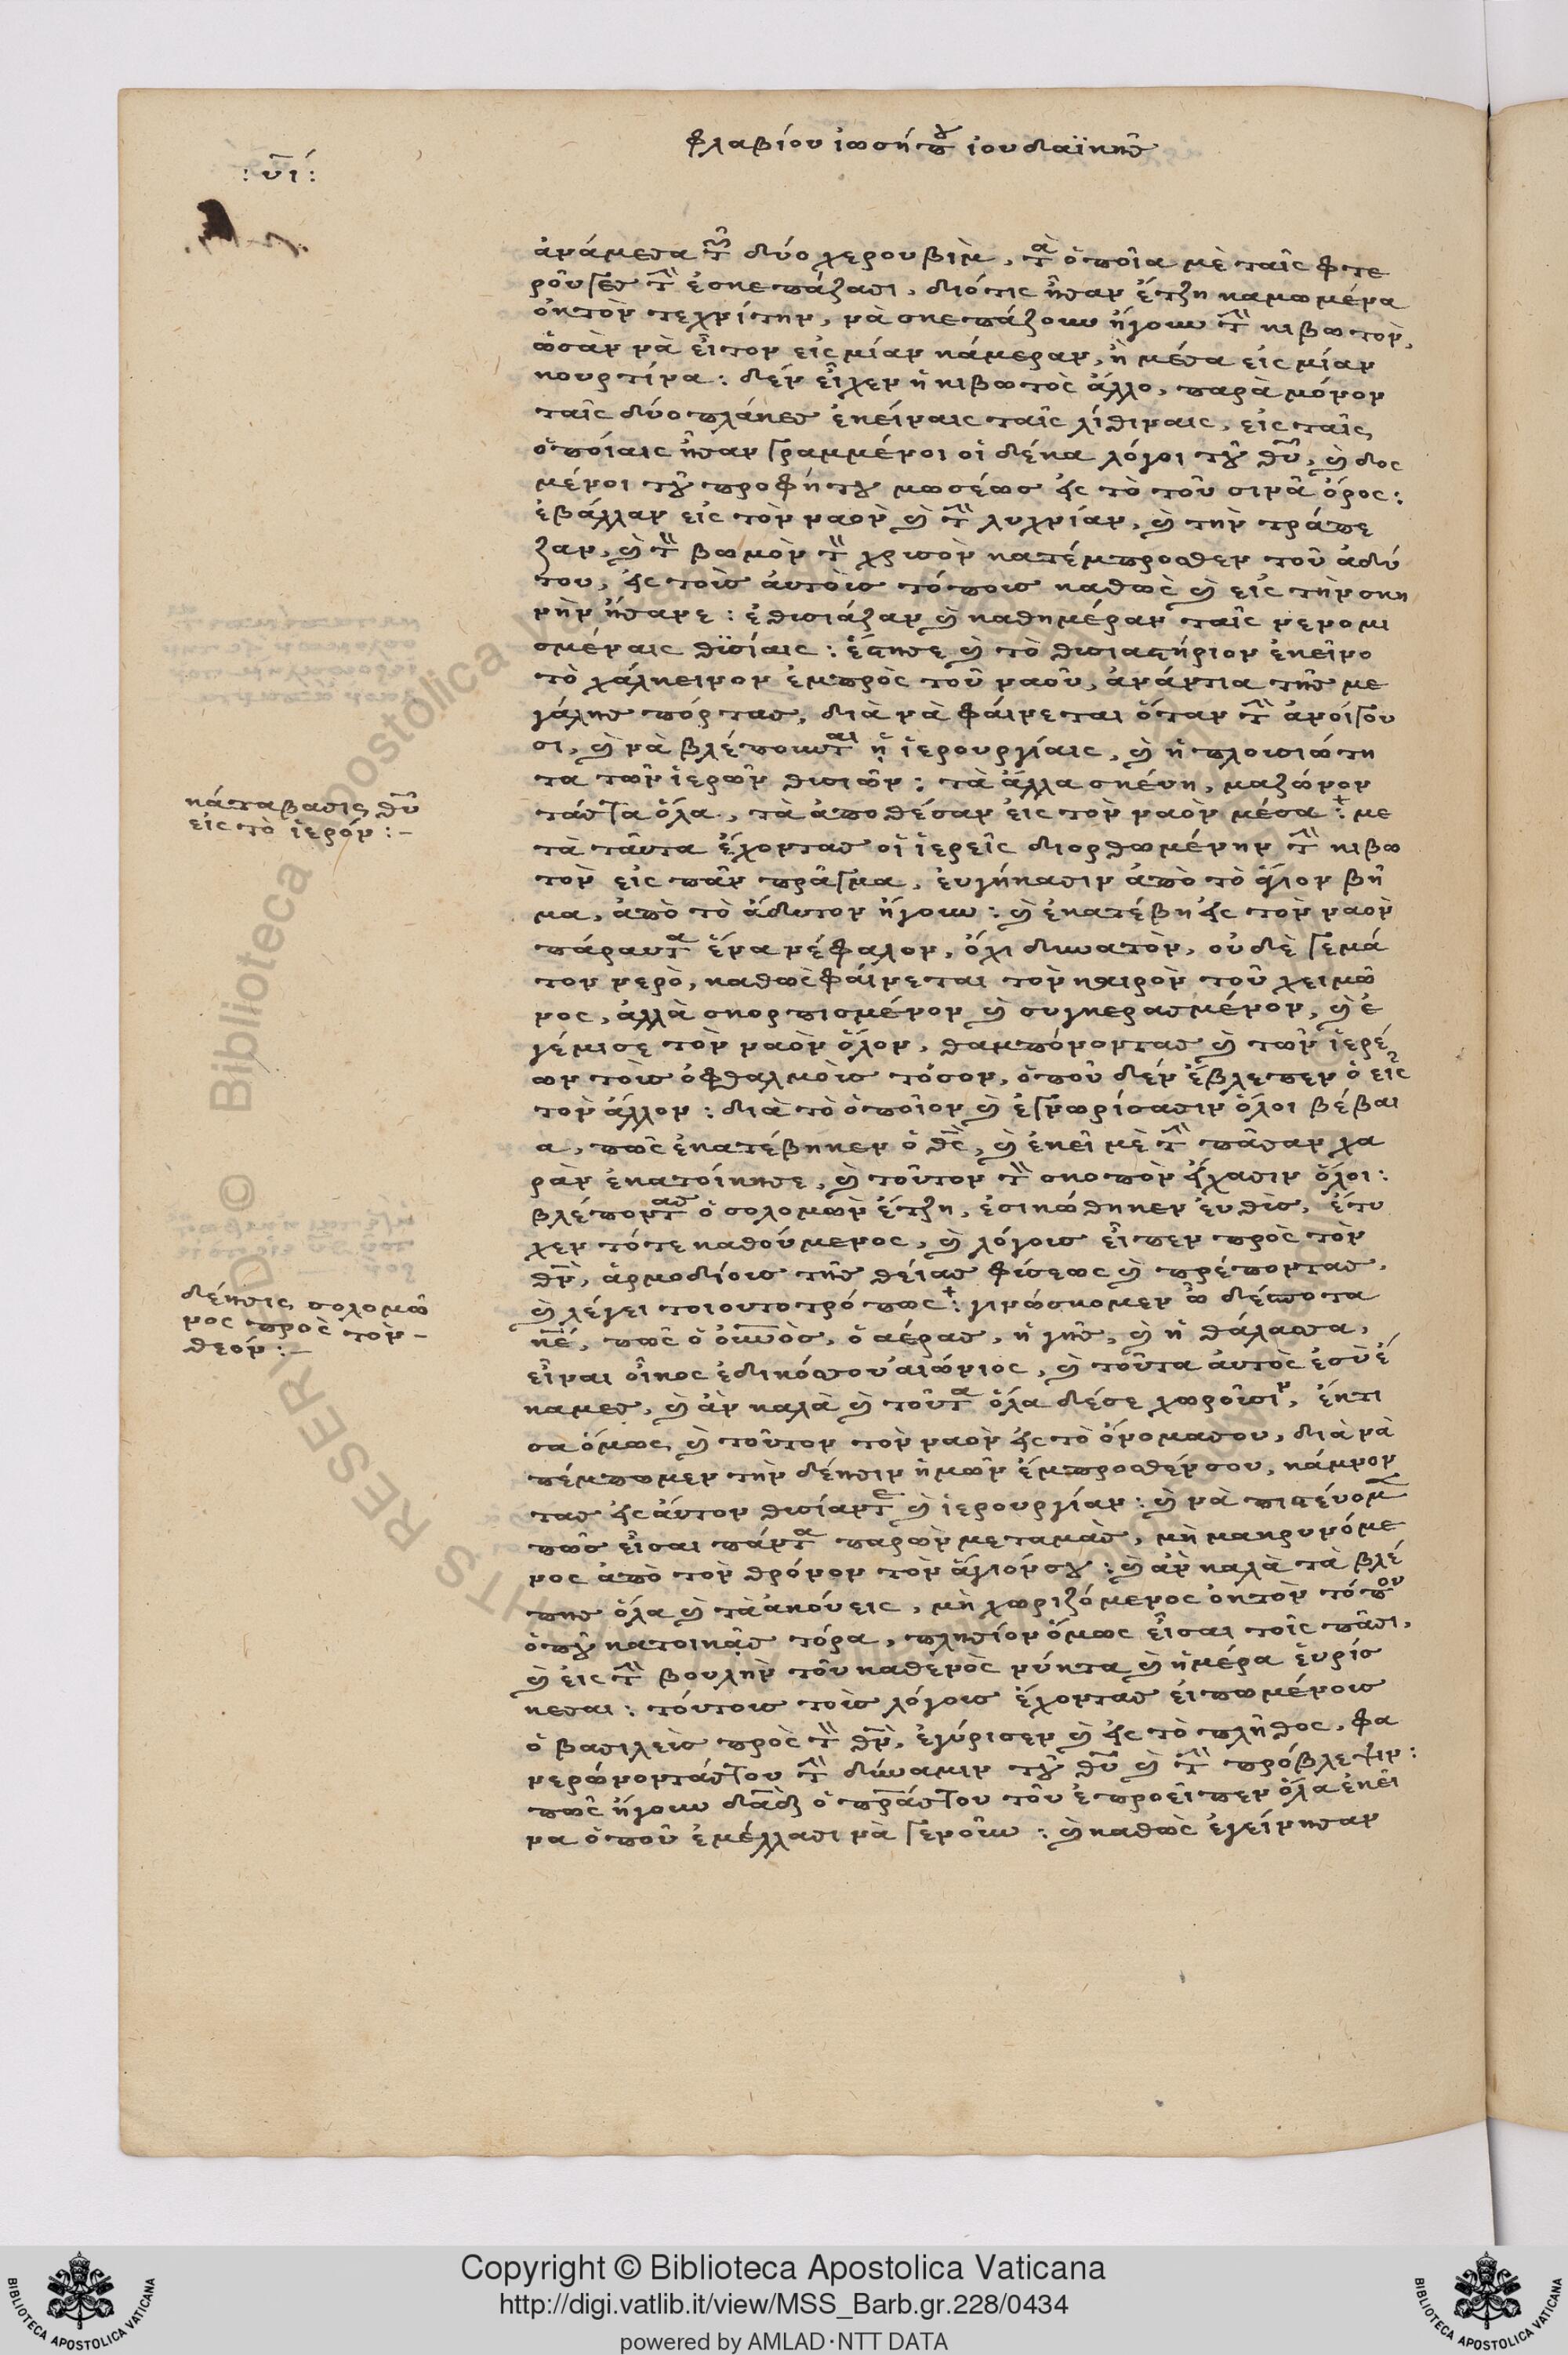 φλαβίου ἰωσήπου ἰουδαϊκῆς
: υι :
ἀνάμεσα τῶν δύο χερουβὶμ, τὰ ὁποῖα μὲ ταῖς φτε
ροῦγες τὴν ἐσκεπάζασι, διότις ἦσαν ἔτζη καμωμένα
ὀκτὸν τεχνίτην, νὰ σκεπάζουν ἤγουν τὴν κιβωτὸν,
ὠσὰν νὰ εἶτον εἰς μίαν κάμεραν, ἢ μέσα εἰς μίαν
κουρτίνα : δὲν εἶχεν ἡ κιβωτὸς ἄλλο, παρὰ μόνον
ταῖς δύο πλάκες ἐκείναις ταῖς λίθιναις, εἰς ταῖς
ὁποίαις ἦσαν γραμμένοι οἱ δέκα λόγοι τοῦ θῦ, καὶ δος
μένοι τοῦ προφήτου μωσέως εἰς τὸ τοῦ σινᾶ ὄρος :
ἐβάλλαν εἰς τὸν ναὸν καὶ τὴν λυχνίαν, καὶ τὴν τράπε
ζαν, καὶ τὸν βωμὸν τὸν χρισὸν κατέμπροσθεν τοῦ ἀδύ
του, εἰς τοὺς ἀυτοὺς τόπους καθὼς καὶ εἰς τὴν σκη
νὴν ἤσανε : ἐθυσιάζαν καὶ καθημέραν ταῖς νενομι
σμέναις θϋσίαις : ἔστησε καὶ τὸ θυσιαστήριον ἐκεῖνο
τὸ χάλκεινον ἐμπρὸς τοῦ ναοῦ, ἀνάντια τῆς με
γάλης πόρτας, διὰ νὰ φαίνεται ὅταν τὴν ἀνοίγου
σι, καὶ νὰ βλέπουνται ἡ ἱερουργίαις, καὶ ἡ πλουσιώτη
τα τῶν ἱερῶν θυσιῶν : τὰ ἄλλα σκέυη, μαζώνον
τάς τα ὅλα, τὰ ἀποθέσαν εἰς τὸν ναὸν μέσα : με
τὰ ταῦτα ἔχοντας οἱ ἱερεῖς διορθωμένην τὴν κιβω
τὸν εἰς πᾶν πρᾶγμα, ἐυγήκασιν ἀπὸ τὸ ἅγιον βῆ
μα, ἀπὸ τὸ ἄδυτον ἤγουν : καὶ ἐκατέβη εἰς τὸν ναὸν
πάραυτα ἕνα νέφαλον, ὄχι δυνατὸν, οὐδὲ γεμά
τον νερὸ, καθὼς φαίνεται τὸν καιρὸν τοῦ χειμῶ
νος, ἀλλὰ σκορπισμένον καὶ συγκερασμένον, καὶ ἐ
γέμισε τὸν ναὸν ὅλον, θαμπόνοντας καὶ τῶν ἱερέ
ων τοὺς ὀφθαλμοὺς τόσον, ὁποῦ δὲν ἔβλεπεν ὁ εἷς
τὸν ἄλλον : διὰ τὸ ὁποῖον καὶ ἐγνωρίσασιν ὅλοι βέβαι
α, πῶς ἐκατέβηκεν ὁ θς, καὶ ἐκεῖ μὲ τὴν πᾶσαν χα
ρὰν ἐκατοίκησε, καὶ τοῦτον τὸν σκοπὸν εἴχασιν ὅλοι :
βλέποντας ὁ σολομὼν ἔτζη, ἐσικώθηκεν ἐυθὺς, ἔτυ
χεν τότε καθούμενος, καὶ λόγους εἶπεν πρὸς τὸν
θν, ἁρμοδίους τῆς θείας φύσεως καὶ πρέποντας,
καὶ λέγει τοιουτοτρόπως : γινώσκομεν ὦ δέσποτα
κε, πῶς ὁ οὐνὸς, ὁ αέρας, ἡ γῆς, καὶ ἡ θάλασσα,
εἶναι οἶκος ἐδικόσσου αἰώνιος, καὶ τοῦτα ἀυτὸς ἐσὺ ἔ
καμες, καὶ ἂν καλὰ καὶ τοῦτα ὅλα δέσε χωροῦσιν, ἔκτι
σα ὅμως καὶ τοῦτον τὸν ναὸν εἰς τὸ ὄνομασου, διὰ νὰ
πέμπωμεν τὴν δέησιν ἡμῶν ἔμπροσθέν σου, κάμνον
τας εἰς ἀυτον θυσίαν τε καὶ ἱερουργίαν : καὶ νὰ πιστέυομεν
πῶς εἶσαι πάντα παρὼν μεταμᾶς, μὴ μακρυνόμε
νος ἀπὸ τὸν θρόνον τὸν ἅγιόν σου : καὶ ἂν καλὰ τὰ βλέ
πης ὅλα καὶ τὰ ἀκούεις, μὴ χωριζόμενος ὀκτὸν τόπον
ὁποῦ κατοικᾷς τόρα, πλησίον ὅμως εἶσαι τοῖς πᾶσι,
καὶ εἰς τὴν βουλὴν τοῦ καθενὸς νύκτα καὶ ἡμέρα ἑυρίσ
κεσαι : τούτους τοὺς λόγους ἔχοντας εἰπωμένους
ὁ βασιλεὺς πρὸς τὸν θν, ἐγύρισεν καὶ εἰς τὸ πλῆθος, φα
νερώνοντάς του τὴν δύναμιν τοῦ θῦ καὶ τὴν πρόβλεψιν :
πῶς ἤγουν δαδ ὁ πράς του τοῦ ἐπροεῖπεν ὅλα ἐκεῖ
να ὁποῦ ἐμέλλασι νὰ γενοῦν : καὶ καθὼς ἐγείνησαν
κάταβασις θῦ
εἰς τὸ ἱερόν : –
δέησις σολομῶ
νος πρὸς τὸν –
θεόν : –
Copyright © Biblioteca Apostolica Vaticana
http://digi.vatlib.it/view/MSS_Barb.gr.228/0434
powered by AMLAD·NTT DATA
BIBLIOTECA APOSTOLICA VATICANA
BIBLIOTECA APOSTOLICA VATICANA